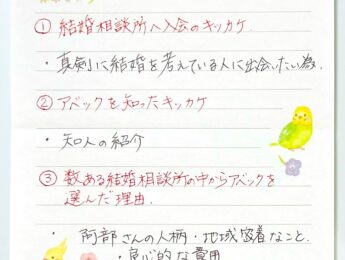 ① 結婚相談所へ入会のキッカケ
・真剣に結婚を考えている人に出会いたい為。
② アベックを知ったキッカケ
・知人の紹介
③ 数ある結婚相談所の中からアベックを
選んだ理由.
・阿部さんの人柄・地域密着なこと.
・良心的な費用